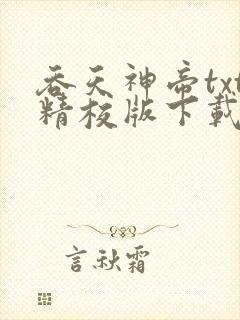 吞天神帝txt
精校版下载
言秋霜